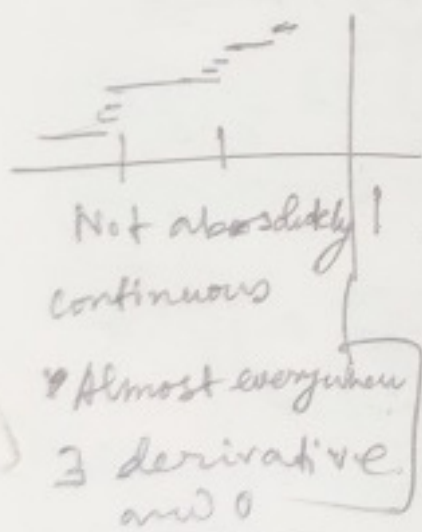 Not absolutely 1
continuous
Almost everywhere
∃ derivative
and 0